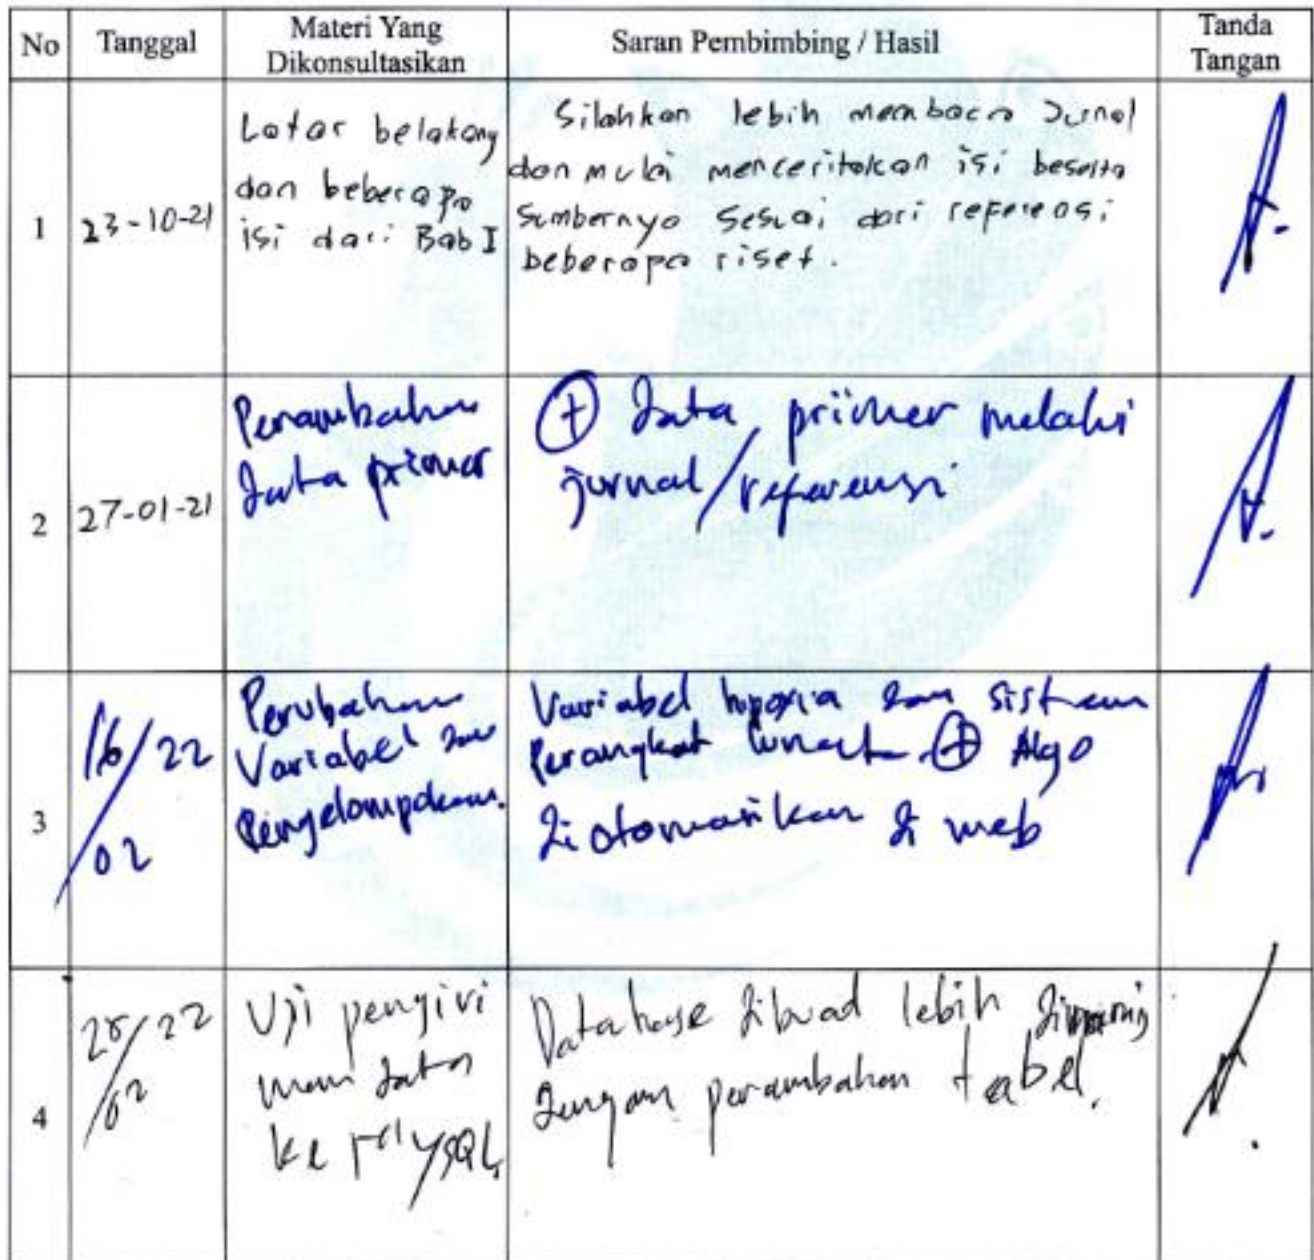 No Tanggal Materi Yang Dikonsultasikan Saran Pembimbing / Hasil Tanda Tangan
1 23-10-21
Latar belakang
dan beberapa
isi dari Bab I
Silahkan lebih membaca Jurnal
dan mulai menceritakan isi beserta
Sumbernya Sesuai dari referensi
beberapa riset.
2 27-01-21
Penambahan
Data primer
+ Data primer melalui
jurnal/referensi
3 16/02 22
Perubahan
Variabel dan
Pengelompokan.
Variabel dan sistem
Perangkat lunak + Algo
Diotomasikan di web
4 28/02 22
Uji pengiri
man data
ke MySQL
Database dibuad lebih
dengan penambahan tabel.